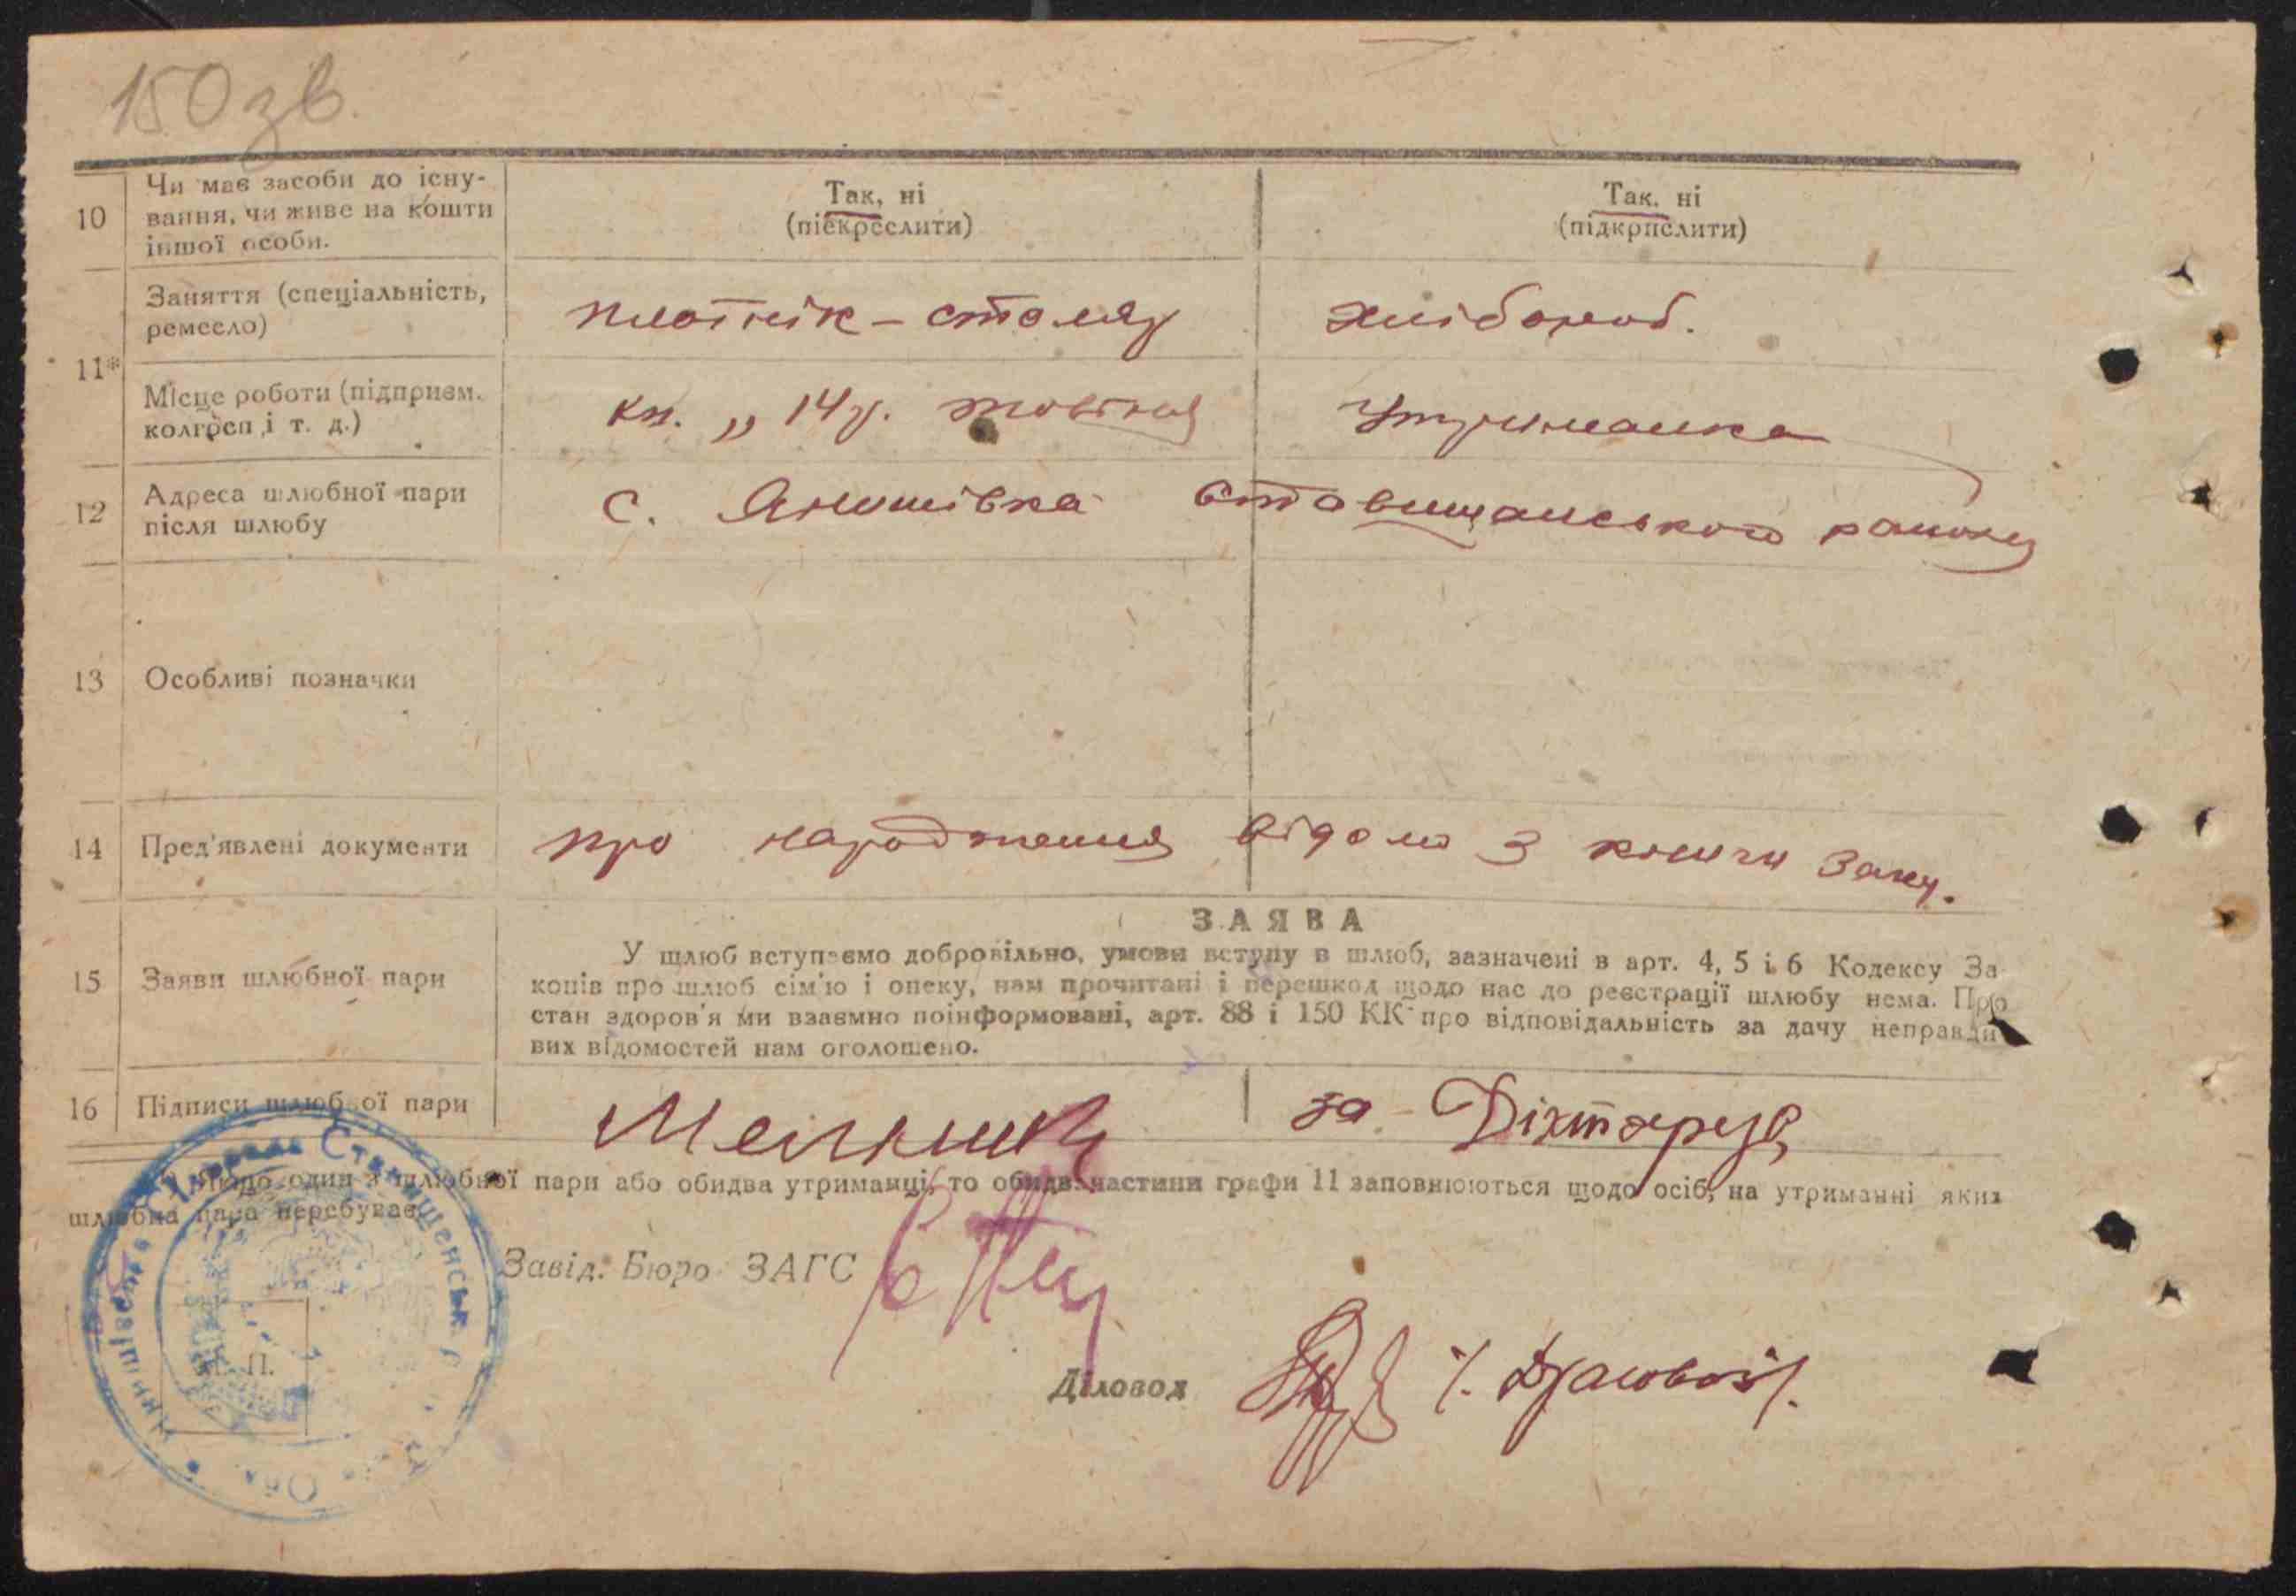 150 зв.
10
Чи має засоби до існу-
вання, чи живе на кошти
іншої особи.
Так, ні
(піекреслити)
Так. ні
(підкрпслити)
11*
Заняття (спеціальність,
ремесло)
плотнік - столяр
хлібороб.
Місце роботи (підприєм.
колгосп і т. д.)
кп. „ 14 р. жовтня
утриманка
12
Адреса шлюбної пари
після шлюбу
с. Янишівка Ставищанського району
13
Особливі позначки
14
Пред'явлені документи
про народження відомо з книги Загсу.
15
Заяви шлюбної пари
ЗАЯВА
У шлюб вступаємо добровільно, умови вступу в шлюб, зазначені в арт. 4, 5 і 6 Кодексу За
конів про шлюб сім'ю і опеку, нам прочитані і перешкод щодо нас до реєстрації шлюбу нема. Про
стан здоров'я ми взаємно поінформовані, арт. 88 і 150 КК про відповідальність за дачу неправди
вих відомостей нам оголошено.
16
Підписи шлюбної пари
Мельник
за - Діхтяр
Якщо один з шлюбної пари або обидва утриманці, то обидві частини графи 11 заповнюються щодо осіб, на утриманні яких
шлюбна пара перебуває
Завід. Бюро ЗАГС
М. П.
Діловод